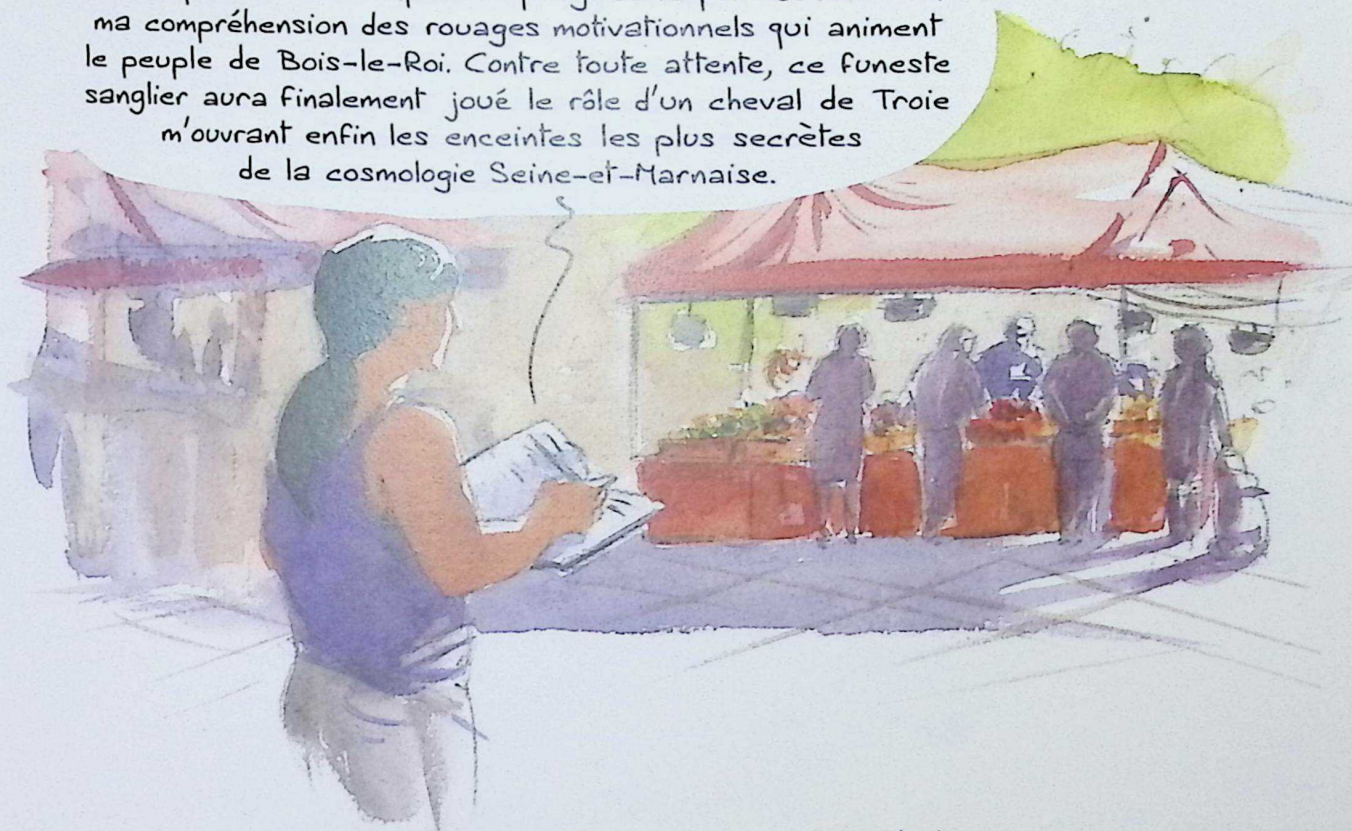 ma compréhension des rouages motivationnels qui animent
le peuple de Bois-le-Roi. Contre toute attente, ce funeste
sanglier aura finalement joué le rôle d'un cheval de Troie
m'ouvrant enfin les enceintes les plus secrètes
de la cosmologie Seine-et-Marnaise.